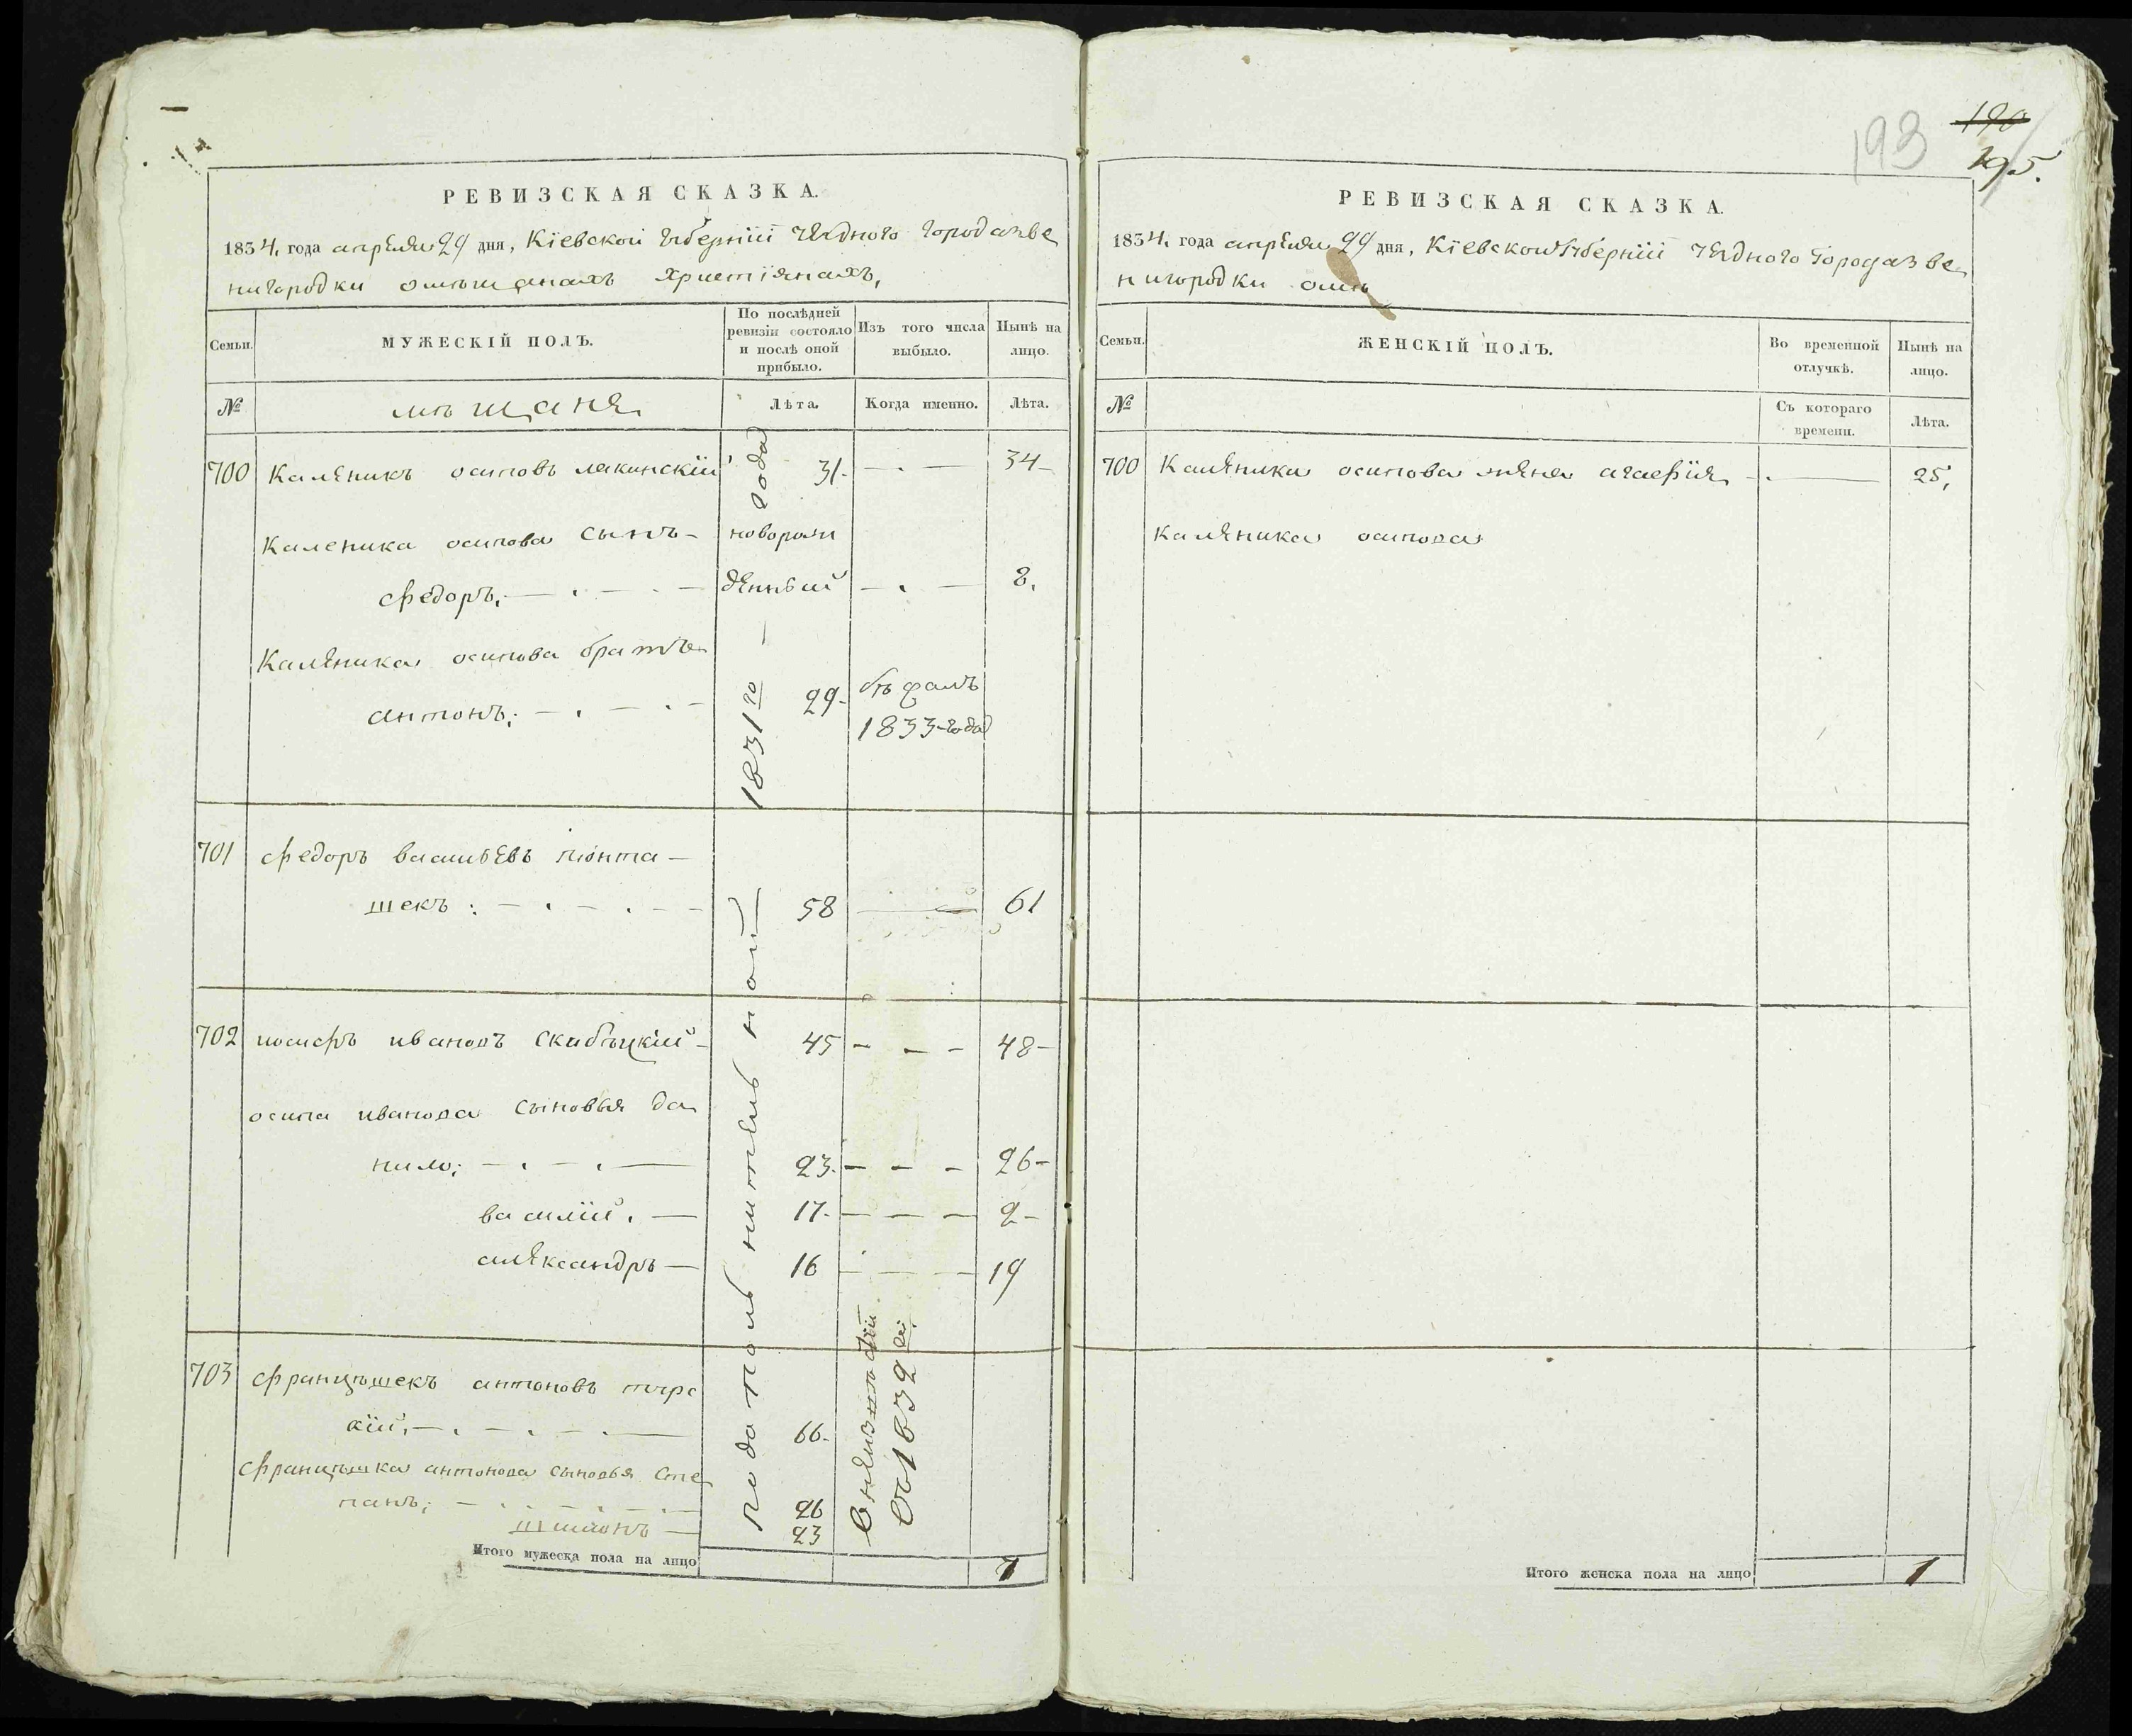 190
193
195.
РЕВИЗСКАЯ СКАЗКА.
1834, года апреля 29 дня, Кіевской губерніи уездного города зве
нигородки омещанахъ христіянахъ,
Семьи.
МУЖЕСКІЙ ПОЛЪ.
По послѣдней ревизіи состояло и послѣ оной прибыло.
Изъ того числа выбыло.
Нынѣ на лицо.
№
мещаня
Лѣта.
Когда именно.
Лѣта.
700 Каленикъ осиповъ лакинскій 31- 34-
Каленика осипова сынъ- новорож
федоръ, денный 8.
Каленика осипова братъ
антонъ; 29- бѣжалъ
1833-года
подополнительной 1831го года
701 федоръ васильевъ понта-
шекъ: 58 61
702 иосифъ ивановъ скабицкій- 45 48-
осипа иванова сыновья да
нило; 23. 26-
василій. 17- 2-
александръ 16 19
703 францышекъ антоновъ турс
кій, 66-
францышка антонова сыновья сте
панъ; 26
шимонъ 23
во 1832
Итого мужеска пола на лицо 7
РЕВИЗСКАЯ СКАЗКА.
1834, года апреля 29 дня, Кіевской губерніи уездного города зве
нигородки оме
Семьи.
ЖЕНСКІЙ ПОЛЪ.
Во временной отлучкѣ.
Нынѣ на лицо.
№
Съ котораго времени.
Лѣта.
700 Каленика осипова жена агафія 25,
Каленика осипова
Итого женска пола на лицо 1